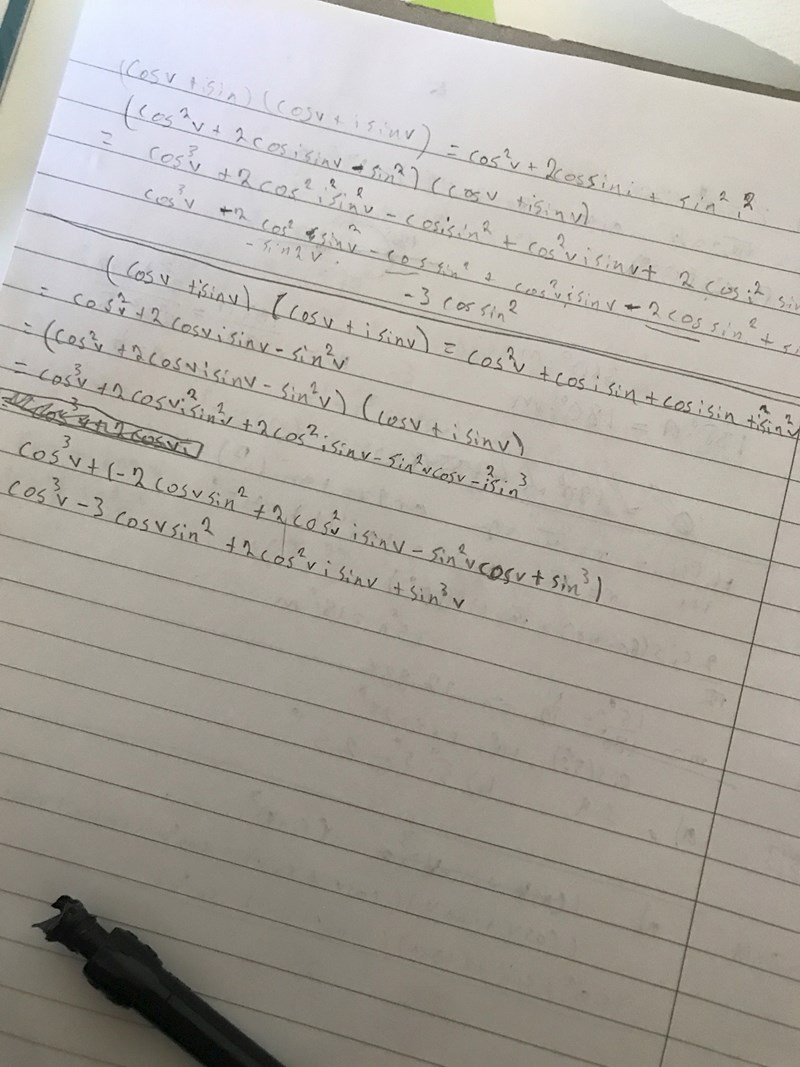 (cosv + isin) (cosv + isinv) = cos²v + 2cossini + sin² i²
(cos²v + 2cosisinv - sin²) (cosv + isinv)
= cos³v + 2cos² i² sin²v - cosisin² + cos²v isinv + 2cos i² sin
cos³v - 2 cos² sin²v - cos sin² + cos²v isinv - 2cos sin² + si
- sin2v. - 3 cos sin²
(cosv + isinv) (cosv + isinv) = cos²v + cosisin + cosisin + i²sin²v
= cos²v + 2cosvisinv - sin²v
= (cos²v + 2cosvisinv - sin²v) (cosv + isinv)
= cos³v + 2cosvi²sin²v + 2cos²isinv - sin²vcosv - i²sin³
cos³v + (-2cosvsin² + 2cos²v isinv - sin²vcosv + sin³)
cos³v - 3cosvsin² + 2cos²visinv + sin³v